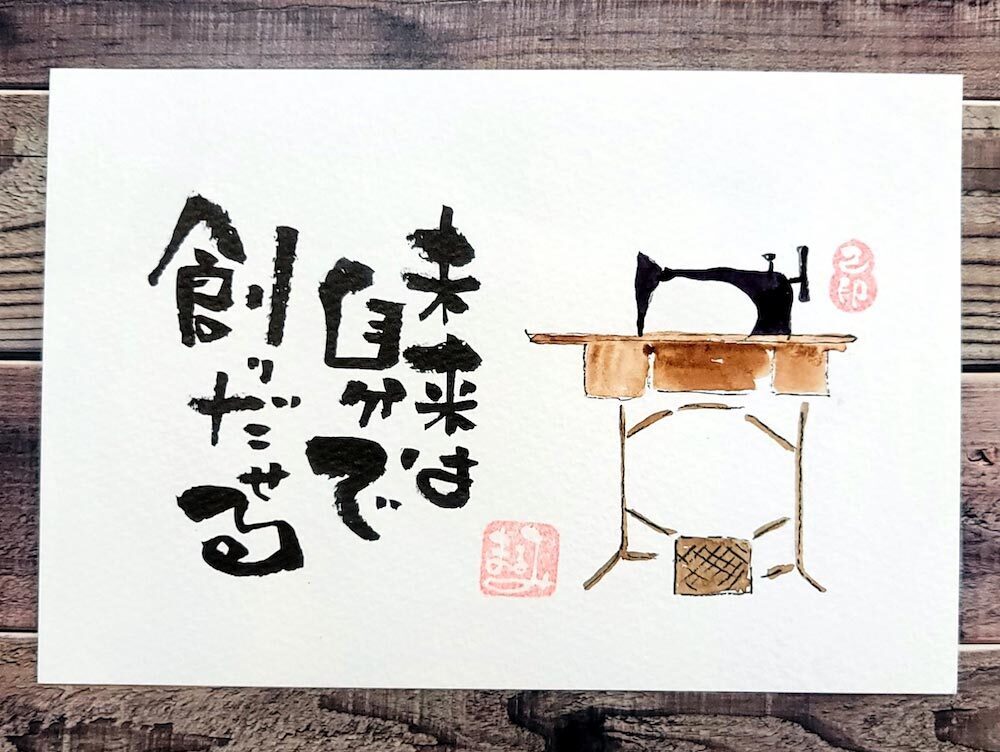 未来は
自分で
創りだせる